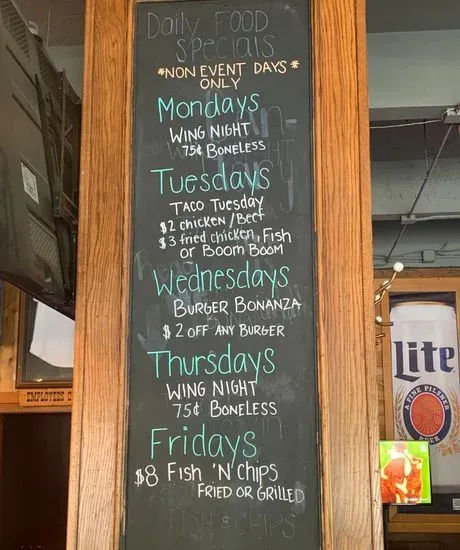 Daily FOOD
Specials
*NON EVENT DAYS*
ONLY
Mondays
WING NIGHT
75¢ BONELESS
Tuesdays
TACO TUESDAY
$2 chicken/Beef
$3 fried chicken, Fish
or BOOM BOOM
Wednesdays
BURGER BONANZA
$2 OFF ANY BURGER
Thursdays
WING NIGHT
75¢ BONELESS
Fridays
$8 FISH 'N' CHIPS
FRIED OR GRILLED
FISH & CHIPS
EMPLOYEES
Lite
A FINE PILSNER
BEER